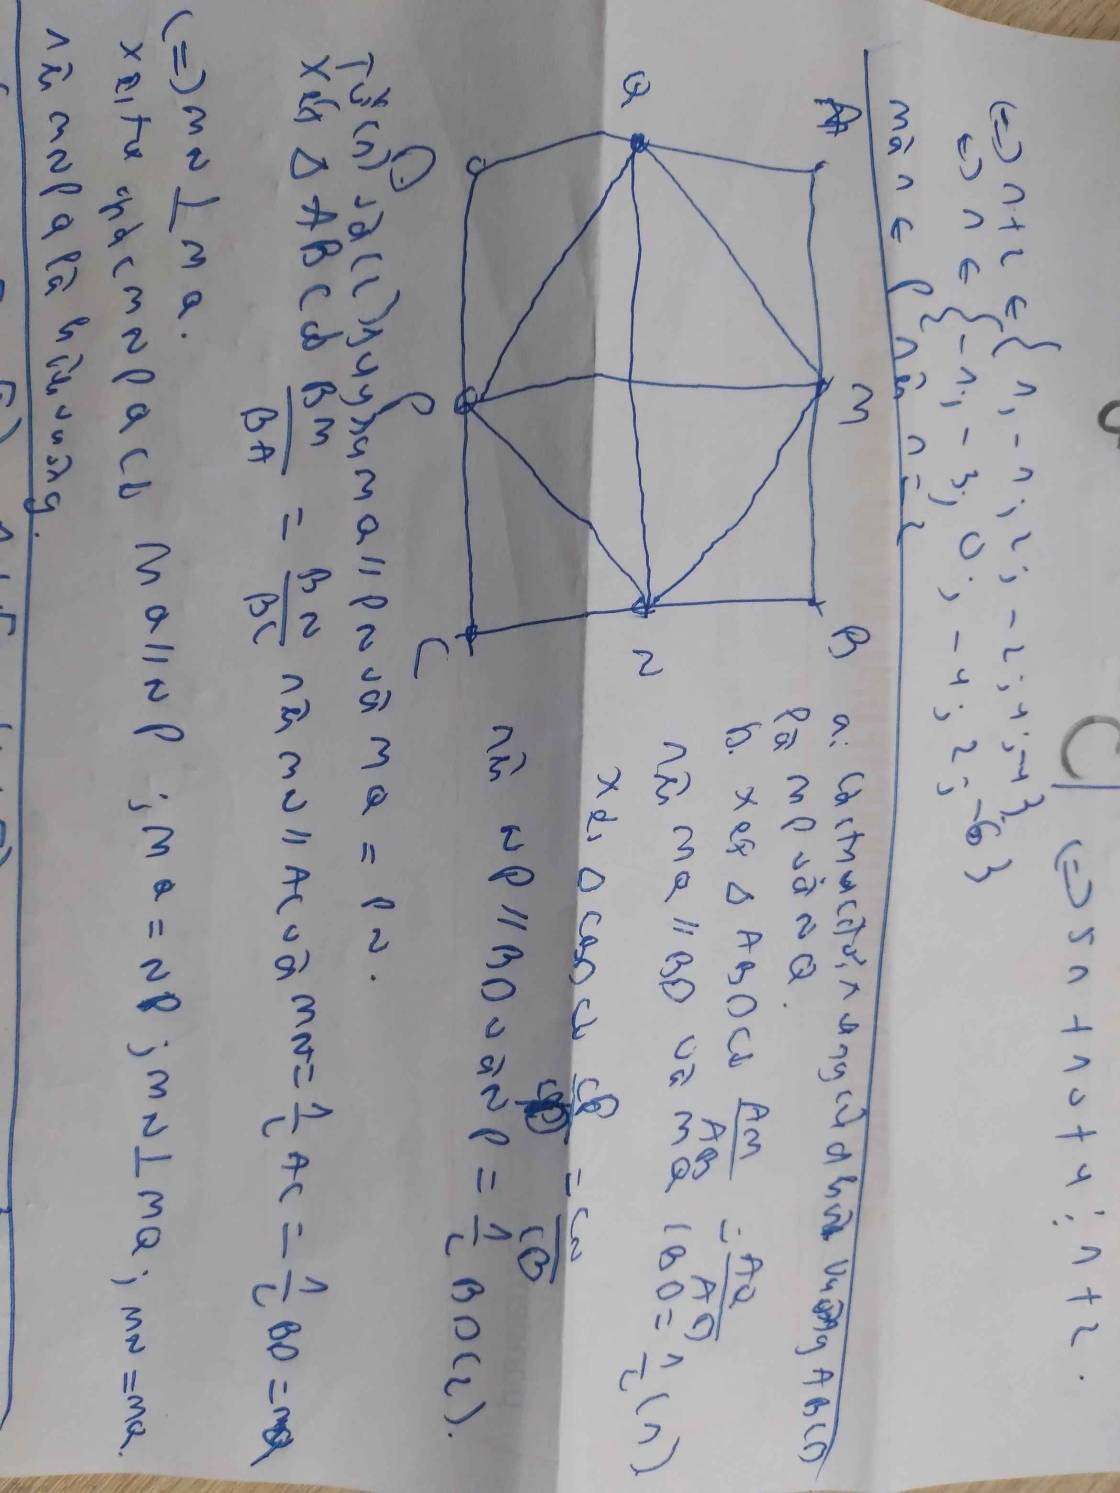 (=) 5n + 10 + 4 ⋮ n + 2.
(=) n+2 ∈ {1, -1; 2; -2; 4; -4}
(=) n ∈ {-1; -3; 0; -4; 2; -6}
mà n ∈ P nên n = 2
A
M
B
Q
N
D
P
C
a: Các trục đối xứng của hình vuông ABCD
là MP và NQ.
b. xét Δ ABD có AM/AB = AQ/AD
nên MQ // BD và MQ (BD = 1/2 (1)
xét Δ CBD có CP/CD = CN/CB
nên NP // BD và NP = 1/2 BD (2).
Từ (1) và (2) suy ra MQ // PN và MQ = PN.
Xét Δ ABC có BM/BA = BN/BC nên MN // AC và MN = 1/2 AC = 1/2 BD = MQ
(=) MN ⊥ MQ.
xét tứ giác MNPQ có MQ // NP ; MQ = NP ; MN ⊥ MQ ; MN = MQ.
nên MNPQ là hình vuông.